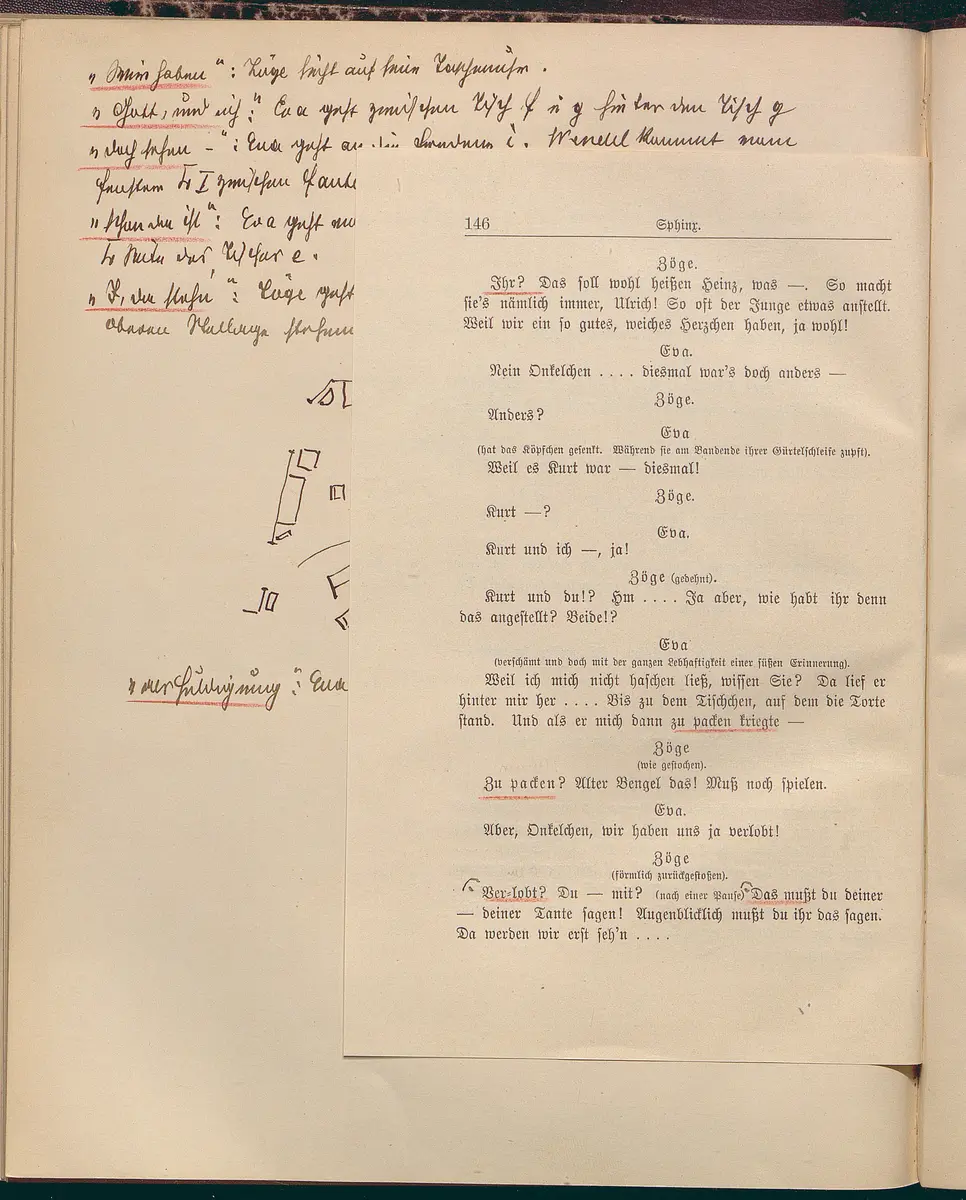 „Wir haben“: Zöge sieht auf seine Taschenuhr.
„Gott, und ich“: Eva geht zwischen Tisch f u g hinter den Tisch g
„doch sehen –“: Eva geht an die i. Wendel kommt vom
Fenster I zwischen
„schon da ist“: Eva geht
des Tisches e.
„I, da steh'“: Zöge geht
oberen
„der Huldigung“: Eva
146 Sphinx.
Zöge.
Ihr? Das soll wohl heißen Heinz, was —. So macht
sie's nämlich immer, Ulrich! So oft der Junge etwas anstellt.
Weil wir ein so gutes, weiches Herzchen haben, ja wohl!
Eva.
Nein Onkelchen .... diesmal war's doch anders —
Zöge.
Anders?
Eva
(hat das Köpfchen gesenkt. Während sie am Bandende ihrer Gürtelschleife zupft).
Weil es Kurt war — diesmal!
Zöge.
Kurt —?
Eva.
Kurt und ich —, ja!
Zöge (gedehnt).
Kurt und du!? Hm .... Ja aber, wie habt ihr denn
das angestellt? Beide!?
Eva
(verschämt und doch mit der ganzen Lebhaftigkeit einer süßen Erinnerung).
Weil ich mich nicht haschen ließ, wissen Sie? Da lief er
hinter mir her .... Bis zu dem Tischchen, auf dem die Torte
stand. Und als er mich dann zu packen kriegte —
Zöge
(wie gestochen).
Zu packen? Alter Bengel das! Muß noch spielen.
Eva.
Aber, Onkelchen, wir haben uns ja verlobt!
Zöge
(förmlich zurückgestoßen).
Ver-lobt? Du — mit? (nach einer Pause) Das mußt du deiner
— deiner Tante sagen! Augenblicklich mußt du ihr das sagen.
Da werden wir erst seh'n ....